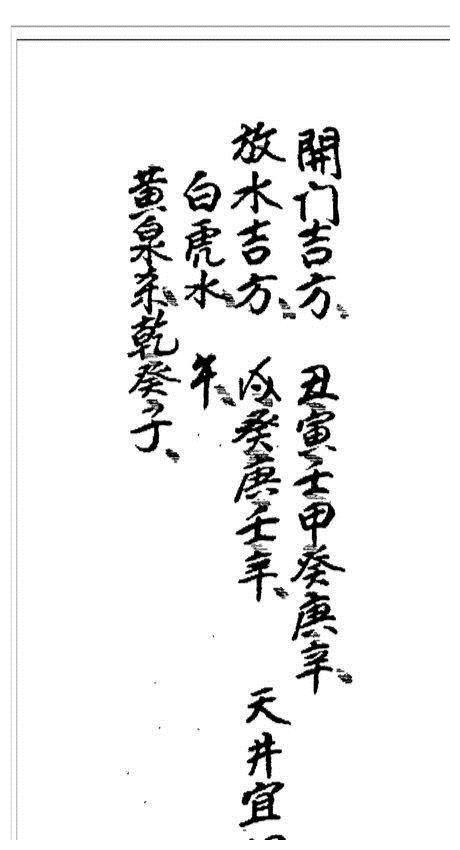 開门吉方、 丑寅壬甲癸庚辛、
放水吉方、 癸庚壬辛、 天井宜
白虎水 午、
黄泉乾癸子、